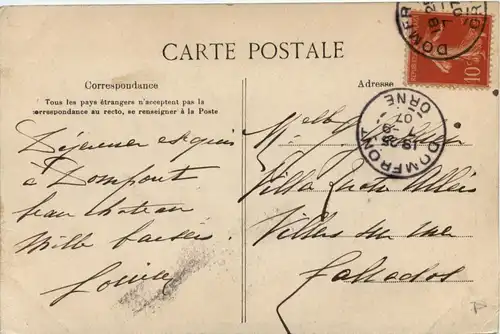 CARTE POSTALE
Correspondance
Tous les pays étrangers n'acceptent pas la
correspondance au recto, se renseigner à la Poste
Déjeuner exquis
à Domfront
beau château
mille baisers
Louise
Adresse
DOMFRONT
ORNE
07
10c
Villa
Villers sur mer
Calvados